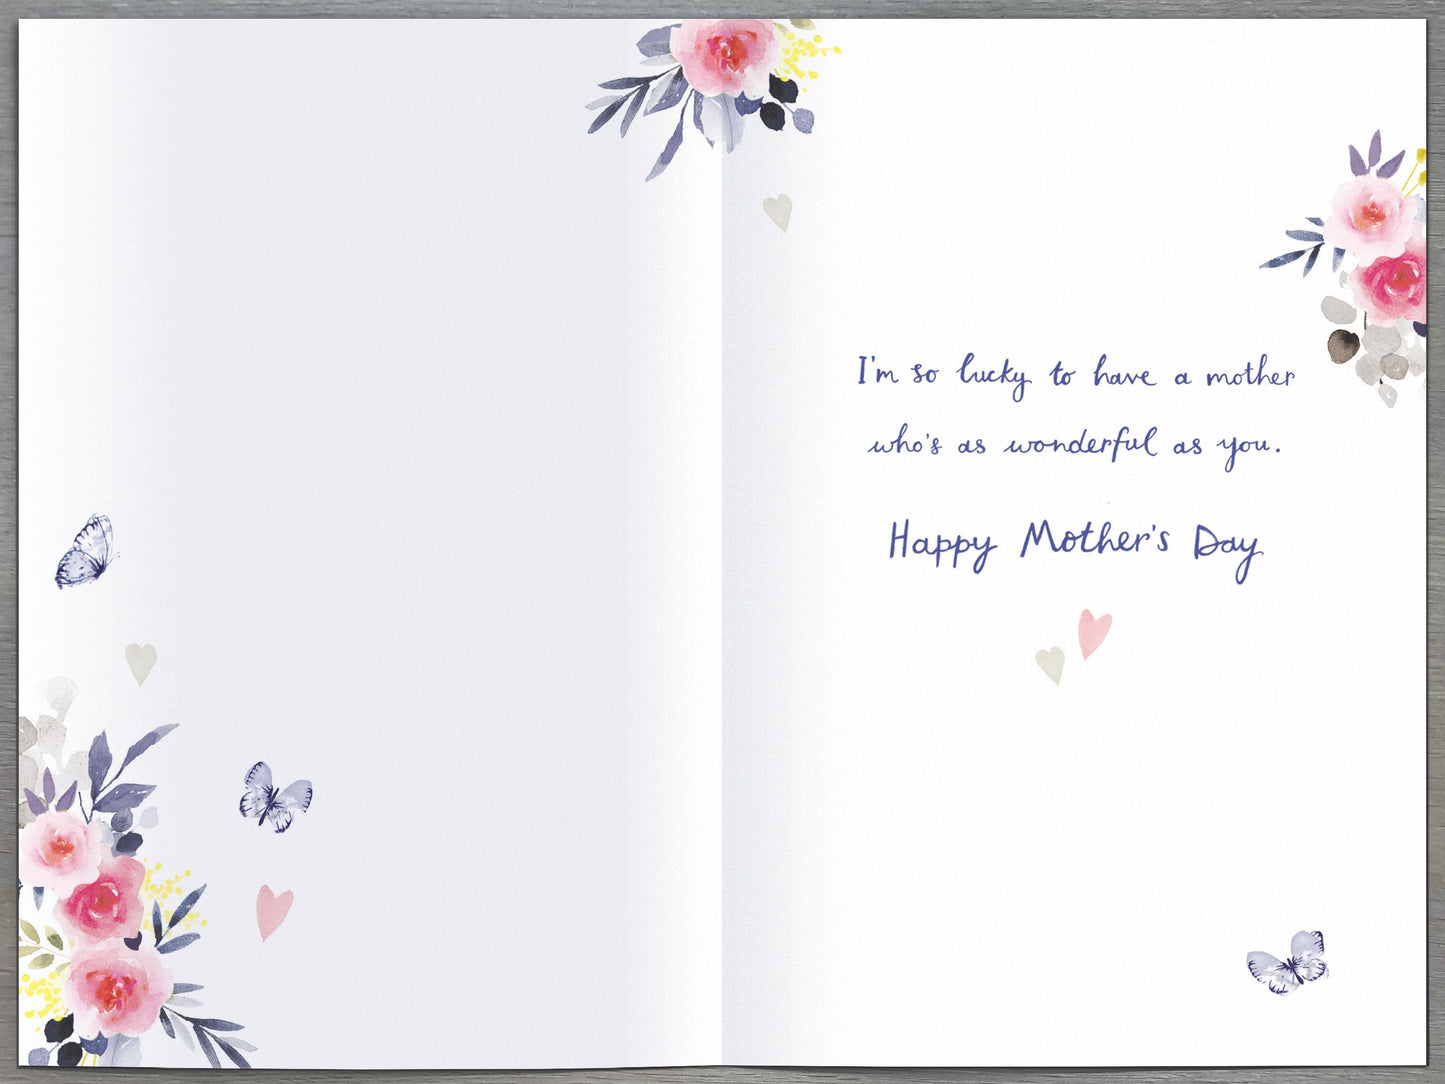 I'm so lucky to have a mother
who's as wonderful as you.
Happy Mother's Day